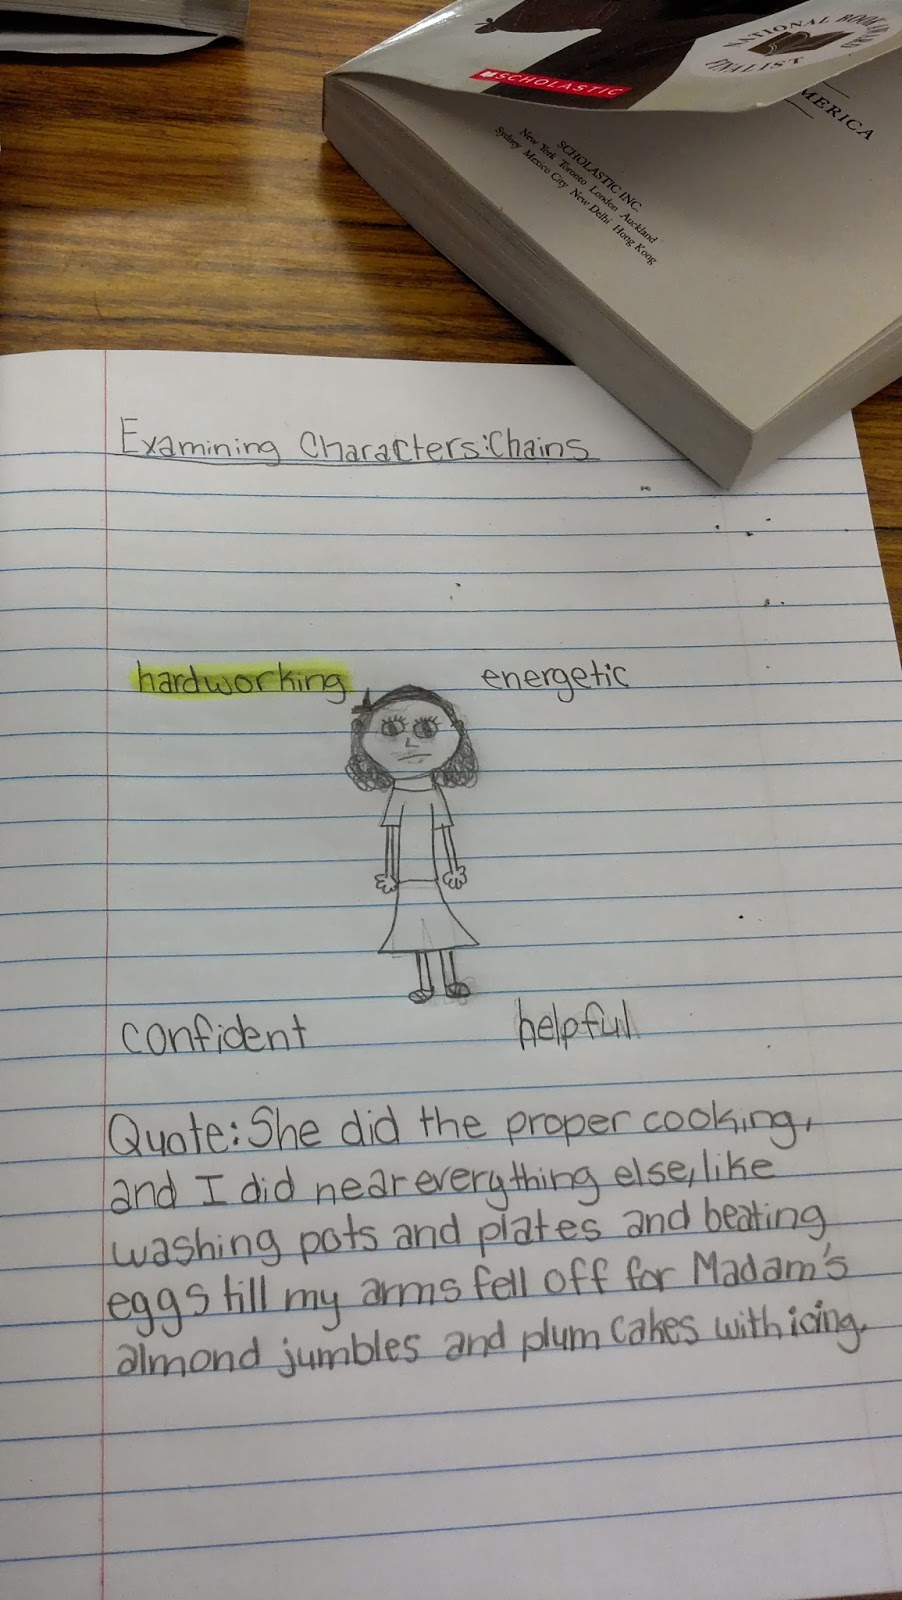 SCHOLASTIC
NATIONAL BOOK AWARD
FINALIST
MERICA
SCHOLASTIC INC.
New York Toronto London Auckland
Sydney Mexico City New Delhi Hong Kong
Examining Characters:Chains
hardworking energetic
confident helpful
Quote: She did the proper cooking,
and I did near everything else, like
washing pots and plates and beating
eggs till my arms fell off for Madam's
almond jumbles and plum cakes with icing.